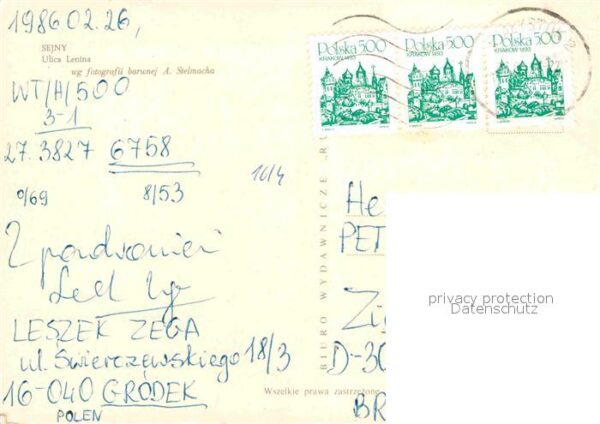 1986.02.26,
SEJNY
Ulica Lenina
wg fotografii barwnej A. Stelmacha
WT/H/500
3-1
27.3827 6758
0/69 8/53
10/4
Z pozdrowieniem
LESZEK ZEGA
ul. Świerczewskiego 18/3
16-040 GRÓDEK
POLEN
Polska 500
KRAKÓW 1493
Polska 500
KRAKÓW 1493
Polska 500
KRAKÓW 1493
BIURO WYDAWNICZE „RU
Wszelkie prawa zastrzeżone
He
PET
D-30
BR
privacy protection
Datenschutz